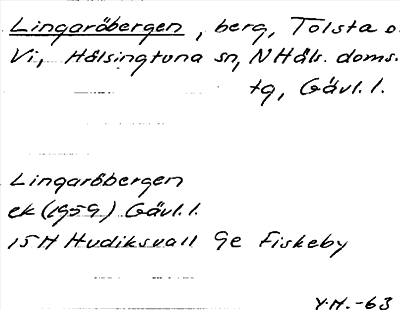 Lingaröbergen, berg, Tolsta o.
Vi, Hälsingtuna sn, N Häls. doms.
tg, Gävl. l.
Lingaröbergen
ek (1959) Gävl. l.
15H Hudiksvall 9e Fiskeby
Y.H. -63